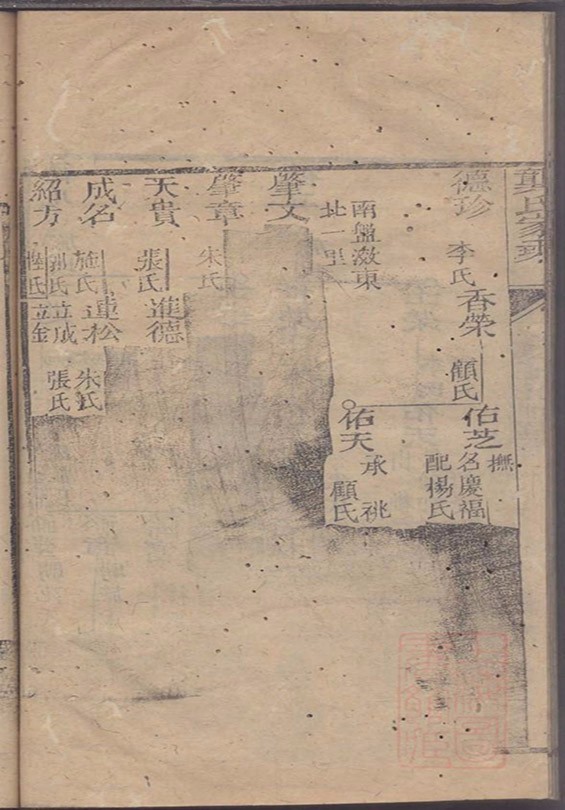 德珍
李氏
香榮
顧氏
佑芝
撫
名慶福
配楊氏
佑天
承祧
顧氏
南盤溦東
北一里
肇文
肇章
朱氏
天貴
張氏
進德
成名
施氏
連松
朱氏
紹方
郭氏
立成
張氏
陸氏
立金